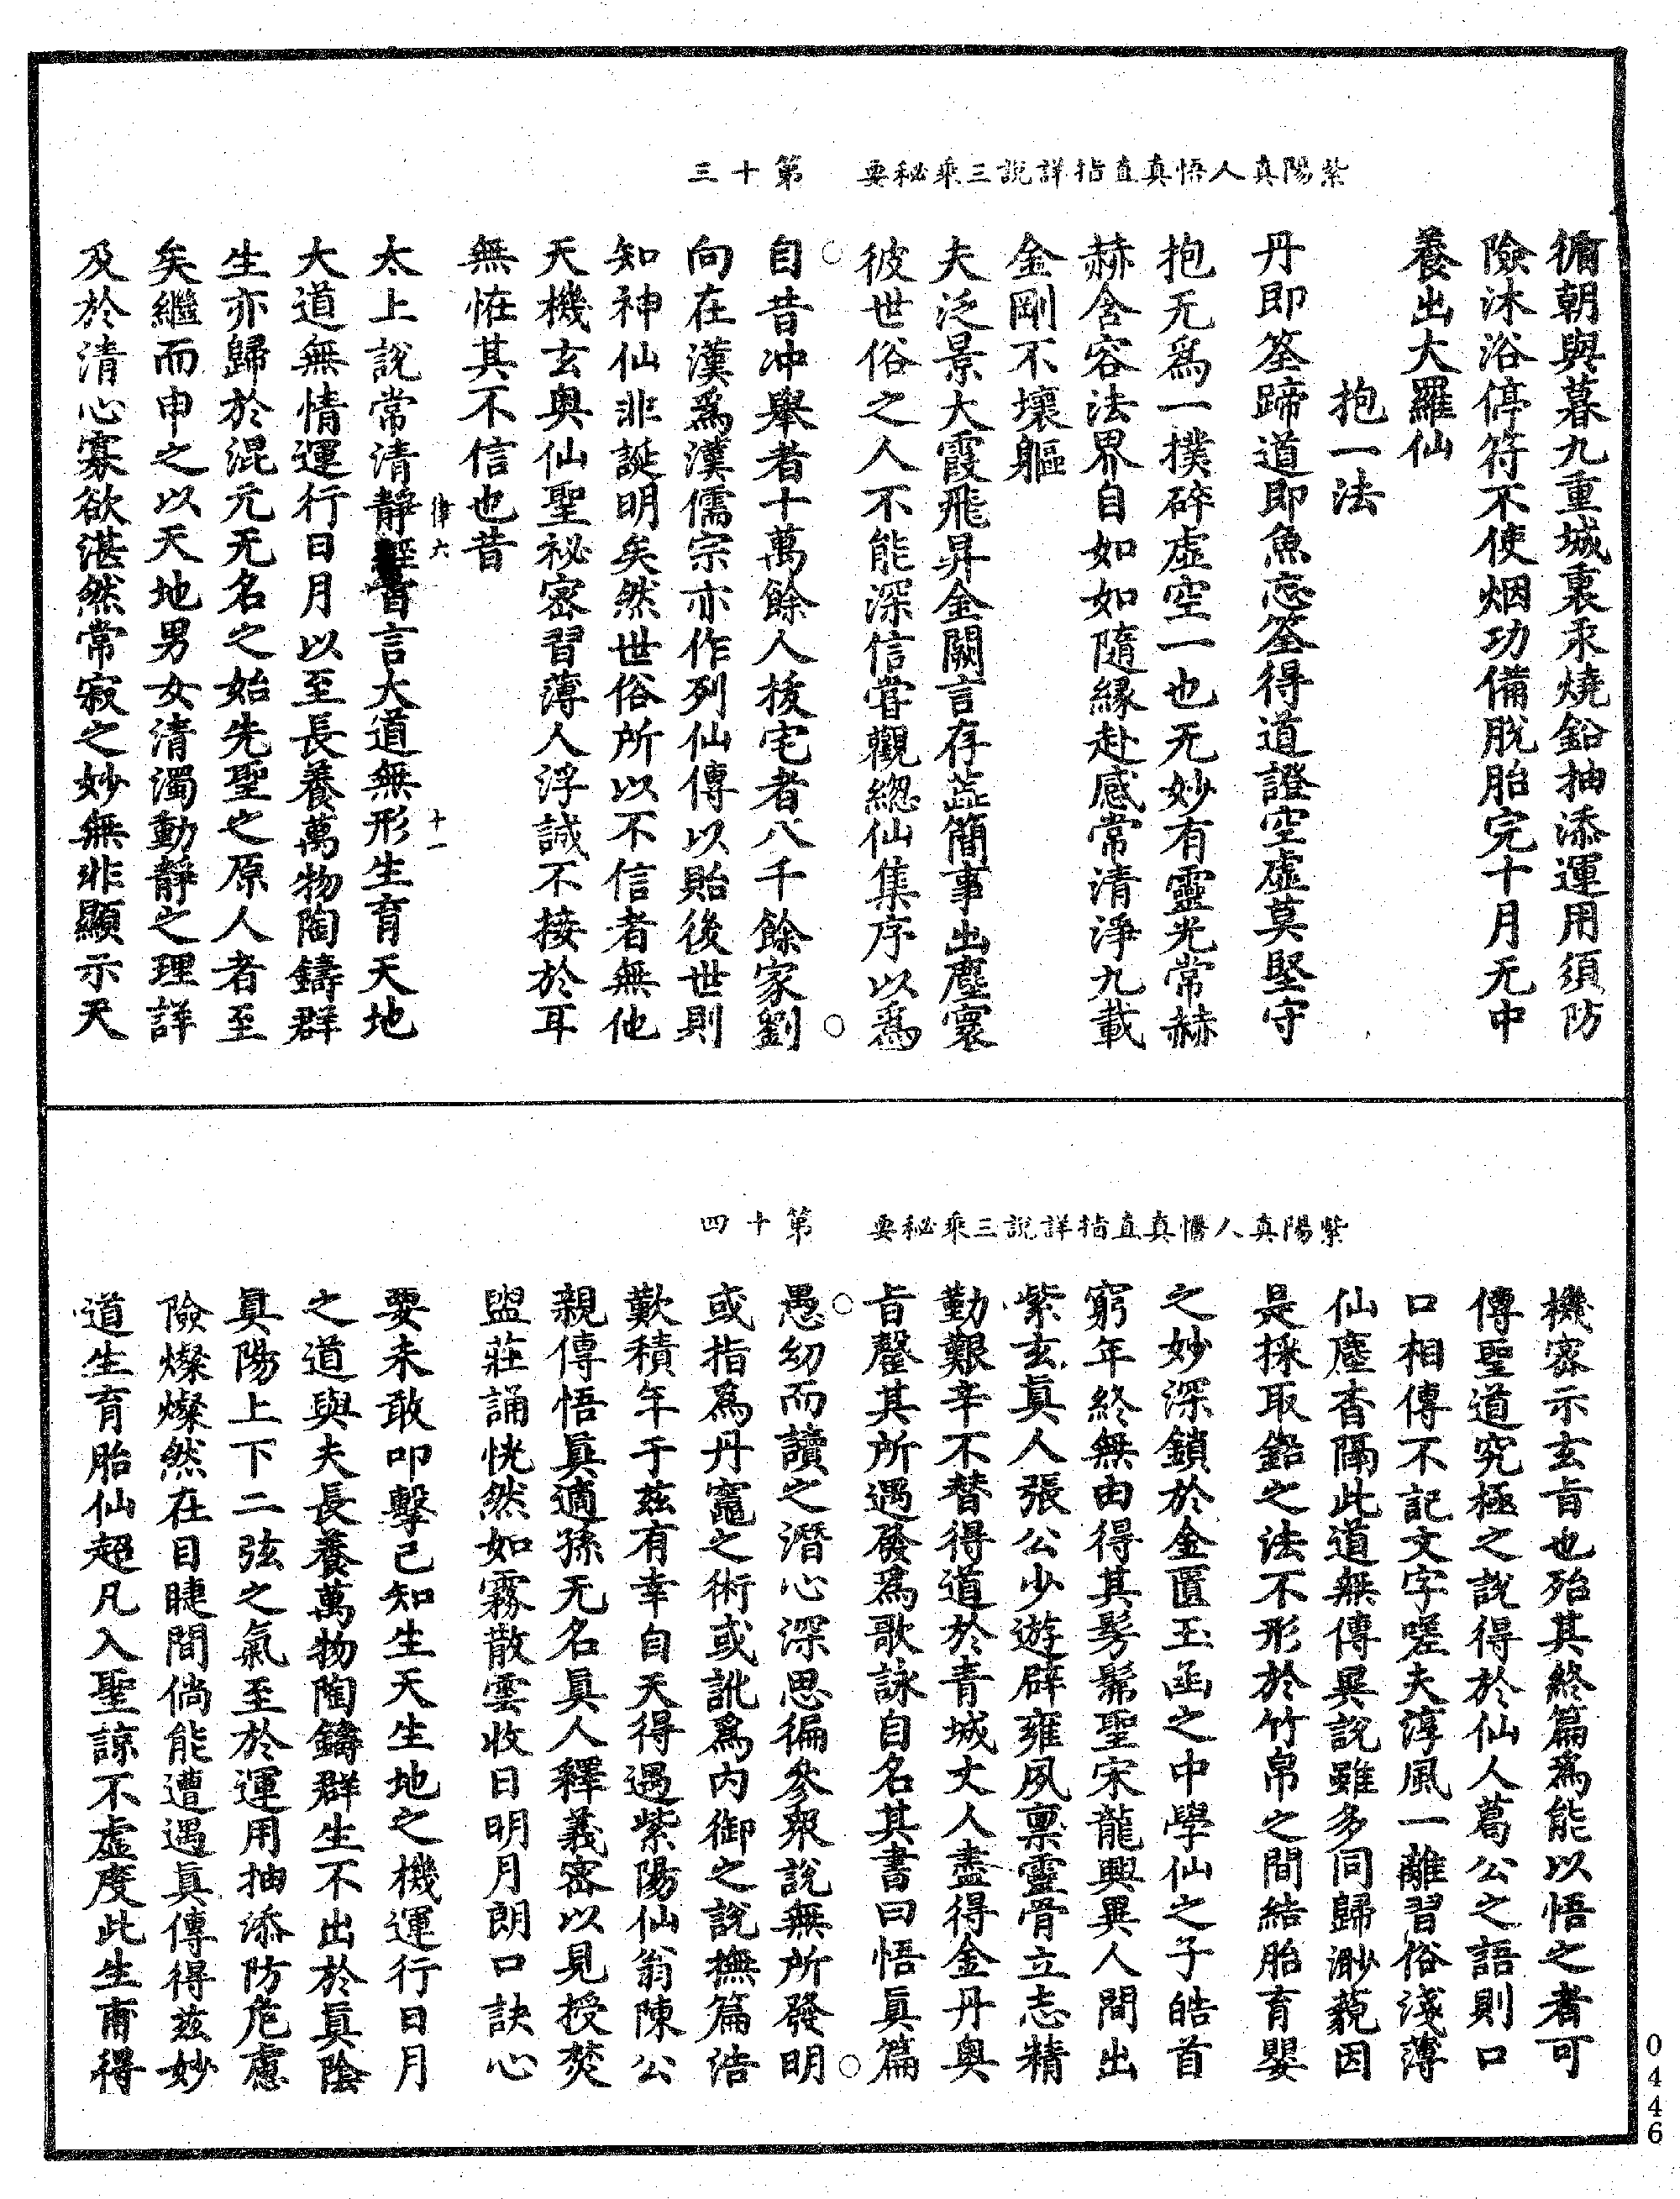 紫陽真人悟真直指詳說三乘秘要　第十三
循朝與暮九重城裏汞燒鉛抽添運用須防
險沐浴停符不使烟功備脫胎完十月无中
養出大羅仙
抱一法
丹即筌蹄道即魚忘筌得道證空虛莫堅守
抱无爲一撲碎虛空一也无妙有靈光常赫
赫含容法界自如如隨緣赴感常清淨九載
金剛不壞軀
夫泛景大霞飛昇金闕言存蕋簡事出塵寰
彼世俗之人不能深信嘗觀緫仙集序以爲
自昔冲舉者十萬餘人拔宅者八千餘家劉
向在漢爲漢儒宗亦作列仙傳以貽後世則
知神仙非誕明矣然世俗所以不信者無他
天機玄奥仙聖祕密習薄人浮誠不接於耳
無恠其不信也昔
律六　十一
太上說常清靜經首言大道無形生育天地
大道無情運行日月以至長養萬物陶鑄群
生亦歸於混元无名之始先聖之原人者至
矣繼而申之以天地男女清濁動靜之理詳
及於清心寡欲湛然常寂之妙無非顯示天
紫陽真人悟真直指詳說三乘秘要　第十四
機密示玄旨也殆其終篇爲能以悟之者可
傳聖道究極之說得於仙人葛公之語則口
口相傳不記文字嗟夫淳風一離習俗淺薄
仙塵杳隔此道無傳異說雖多同歸渺藐因
是採取鉛之法不形於竹帛之間結胎育嬰
之妙深鎖於金匱玉函之中學仙之子皓首
窮年終無由得其髣髴聖宋龍興異人間出
紫玄真人張公少遊辟雍夙禀靈骨立志精
勤艱辛不替得道於青城丈人盡得金丹奥
旨罄其所遇發爲歌詠自名其書曰悟真篇
愚幼而讀之潛心深思徧參衆說無所發明
或指爲丹竈之術或訛爲内御之說撫篇浩
歎積年于玆有幸自天得遇紫陽仙翁陳公
親傳悟真適孫无名真人釋義密以見授焚
盥莊誦恍然如霧散雲收日明月朗口訣心
要未敢叩擊已知生天生地之機運行日月
之道與夫長養萬物陶鑄群生不出於真陰
真陽上下二弦之氣至於運用抽添防危慮
險燦燦然在目睫間倘能遭遇真傳得玆妙
道生育胎仙超凡入聖諒不虛度此生甫得
0446